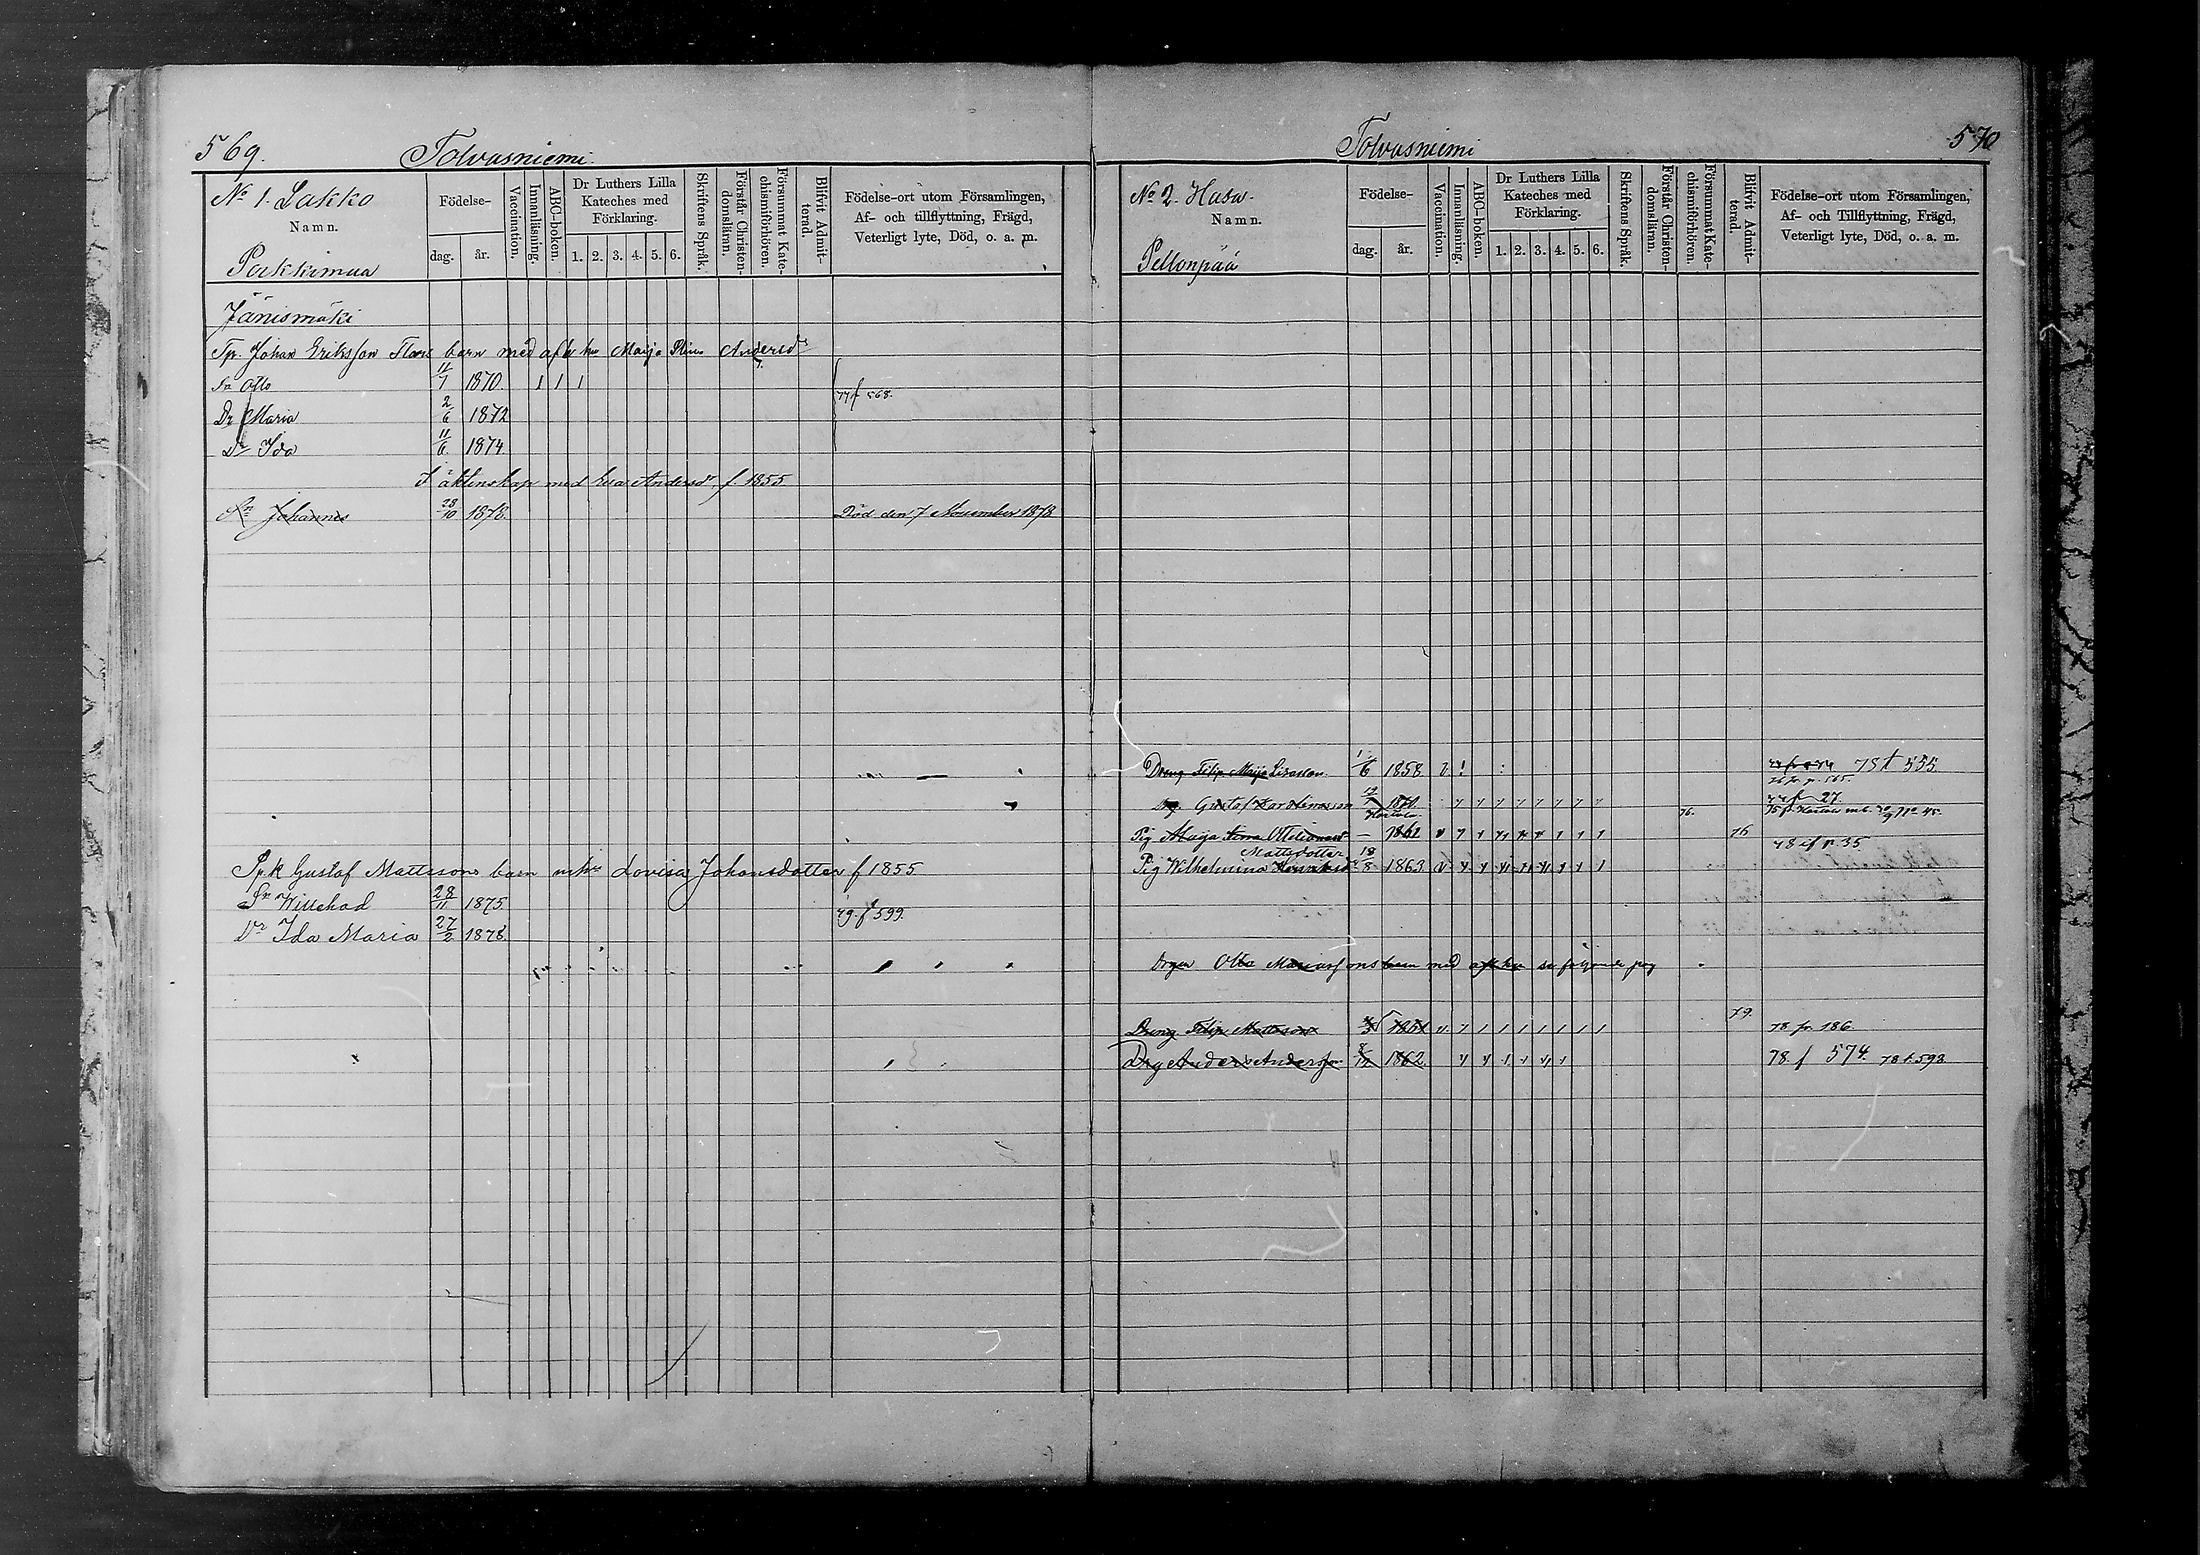 569.
Tolvasniemi
No 1. Lakko
Namn.
Pakkimaa
Födelse-
dag.
år.
Vaccination.
Innanläsning.
ABC-boken.
Dr Luthers Lilla
Kateches med
Förklaring.
1. 2. 3. 4. 5. 6.
Skriftens Språk.
Förstår Christen-
domsläran.
Försummat Kate-
chismiförhören.
Blifvit Admit-
terad.
Födelse-ort utom Församlingen,
Af- och tillflyttning, Frägd,
Veterligt lyte, Död, o. a. m.
Jänismäki
Tp. Johan Eriksson barn med afl hu Maija Andersdr
Sn Otto 11/7 1870. 1 1 1
77 f 568.
Dr Maria 2/6 1872
Dr Ida 11/6 1874
I äktenskap med hu Andersdr f 1855
Sn Johannes 28/10 1878. Död den 7 November 1878
Spk Gustaf Mattssons barn m hu Lovisa Johansdotter f 1855
Sn Willehad 28/11 1875.
79. f 599.
Dr Ida Maria 27/2 1878.
Tolvasniemi
570
No 2. Hasu.
Namn.
Pellonpää
Födelse-
dag.
år.
Vaccination.
Innanläsning.
ABC-boken.
Dr Luthers Lilla
Kateches med
Förklaring.
1. 2. 3. 4. 5. 6.
Skriftens Språk.
Förstår Christen-
domsläran.
Försummat Kate-
chismiförhören.
Blifvit Admit-
terad.
Födelse-ort utom Församlingen,
Af- och Tillflyttning, Frägd,
Veterligt lyte, Död, o. a. m.
Dreng Filip 1/6 1858. 78 t 555.
Gustaf 27.
76.
Pig Maija 1862 16
78 f p. 35
Mattsdotter
Pig Wilhelmina 18/8 1863
Otto med afl hu se följande pag
79.
Dreng Filip Mattsson 78 fr. 186.
Drg Anders Andersson 1862. 78. f 574. 78 t 593